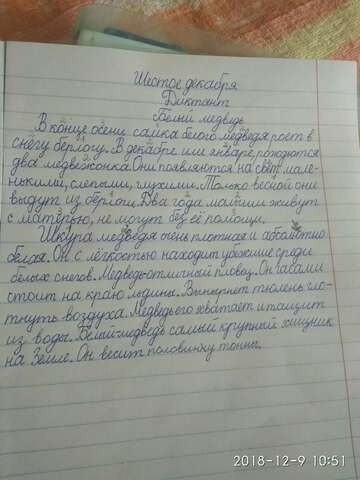 Шестое декабря
Диктант
Белый медведь
В конце осени самка белого медведя роет в
снегу берлогу. В декабре или январе рождаются
два медвежонка. Они появляются на свет мале-
нькими, слепыми, глухими. Только весной они
выдут из берлоги. Два года малыши живут
с матерью, не могут без её помощи.
Шкура медведя очень плотная и абсолютно
белая. Он с лёгкостью находит убежище среди
белых снегов. Медведь отличный пловец. Он часами
стоит на краю льдины. Вынырнет тюлень гло-
тнуть воздуха. Медведь его хватает и тащит
из воды. Белый медведь самый крупный хищник
на Земле. Он весит половину тонны.
2018-12-9 10:51